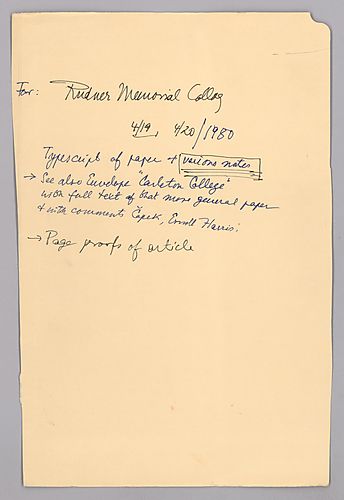 For: Rudner Memorial Colloq
4/19, 4/20/1980
Typescript of paper + various notes
→ See also Envelope "Carleton College"
with full text of that more general paper
+ with comments Čapek, Errol Harris;
→ Page proofs of article